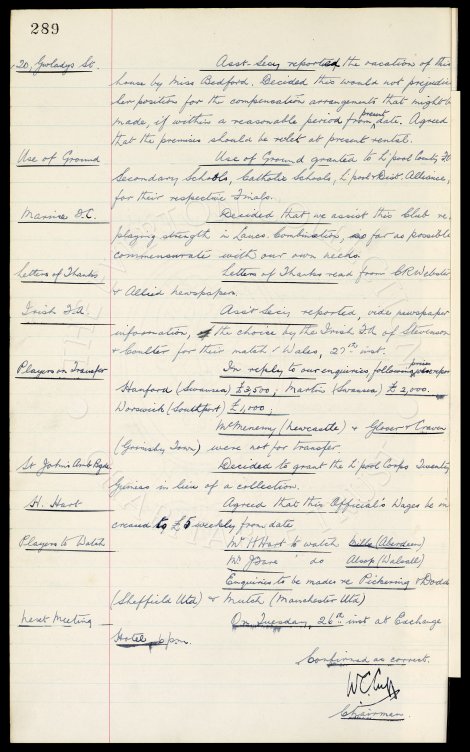 289
20, Gwladys St. Asst. Secy reported the vacation of this
house by Miss Bedford. Decided this would not prejudice
her position for the compensation arrangements that might be
made, if within a reasonable period from present date. Agreed
that the premises should be relet at present rental.
Use of Ground Use of Ground granted to L'pool County F.A.
Secondary Schools, Catholic Schools, L'pool & Dist. Alliance,
for their respective Finals.
Marine F.C. Decided that we assist this Club re
playing strength in Lancs. Combination, so far as possible
commensurate with our own needs.
Letters of Thanks Letters of Thanks read from C.R. Webster
& Allied Newspapers.
Irish F.A. Asst Secy reported, vide newspaper
information, the choice by the Irish F.A. of Stevenson
& Coulter for their match v Wales, 27th inst.
Players on Transfer In reply to our enquiries following prices
Hanford (Swansea) £3,500; Martin (Swansea) £2,000.
Worswick (Southport) £1,000;
McMenemy (Newcastle) & Glover & Craven
(Grimsby Town) were not for transfer.
St John's Amb Bgde Decided to grant the L'pool Corps Twenty
Guineas in lieu of a collection.
H. Hart Agreed that this Official's Wages be in
creased to £5 weekly from date
Players to Watch Mr H Hart to watch Mills (Aberdeen)
Mr J Fare do Alsop (Walsall)
Enquiries to be made re Pickering & Dodds
(Sheffield Utd) & Mutch (Manchester Utd)
Next Meeting On Tuesday, 26th inst at Exchange
Hotel
Confirmed as correct.
W.C. Cuff
Chairman.